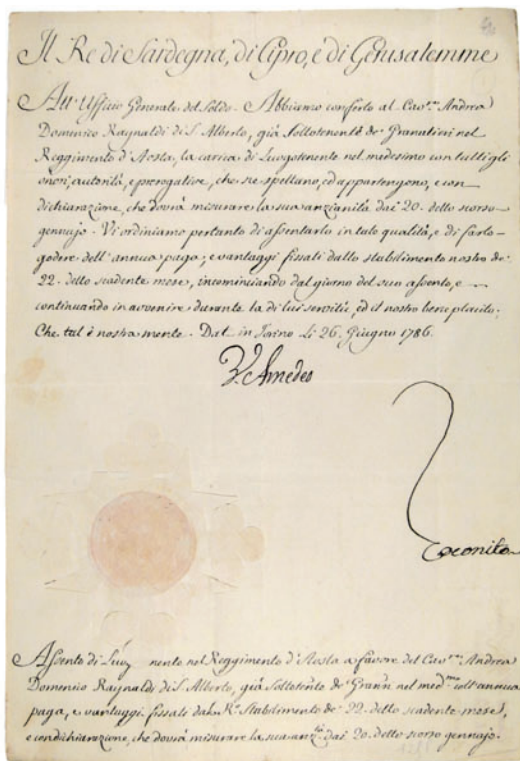 Il Re di Sardegna, di Cipro, e di Gerusalemme
All' Uffizio Generale del Soldo. Abbiamo conferto al Cav.re Andrea
Domenico Raynaldi di S. Alberto, già Sottotenente de' Granatieri nel
Reggimento d'Aosta, la carica di Luogotenente nel medesimo con tutti gli
onori, autorità, e prerogative, che ne spettano, ed appartengono, e con
dichiarazione, che dovrà misurare la sua anzianità dai 20. dello scorso
gennajo. Vi ordiniamo pertanto di assentarlo in tale qualità, e di farlo
godere dell' annua paga, e vantaggi fissati dallo stabilimento nostro de'
22. dello scadente mese, incominciando dal giorno del suo assento, e
continuando in avvenire durante la di lui servitù, ed il nostro beneplacito;
Che tal è nostra mente. Dat. in Torino li 26. Giugno 1786.
V. Amedeo
Assento di nente nel Reggimento d'Aosta a favore del Cav.re Andrea
Domenico Raynaldi di S. Alberto, già Sottoten.te de' Gran.ri nel med.mo coll' annua
paga, e vantaggi fissati dal R.o Stabilimento de' 22. dello scadente mese,
e con dichiarazione, che dovrà misurare la sua anz.tà dai 20. dello scorso gennajo.